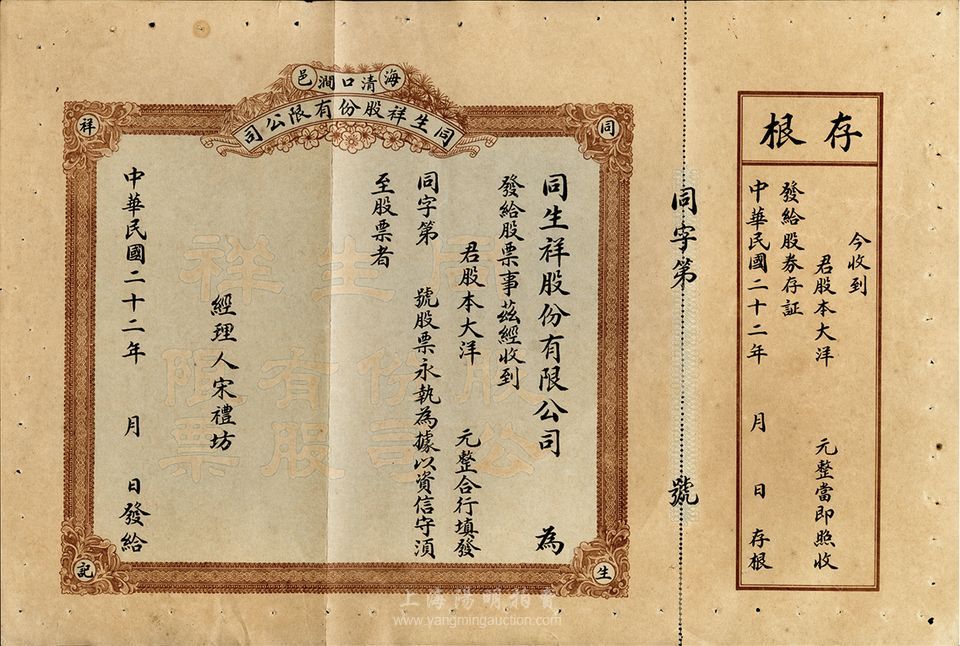 存根
今收到
君股本大洋 元整當即照收
發給股券存証
中華民國二十二年 月 日存根
同字第 號
海清口澗邑
同生祥股份有限公司
同
祥
生
記
同生祥股份有限公司 為
發給股票事茲經收到
君股本大洋 元整合行填發
同字第 號股票永執為據以資信守須
至股票者
經理人宋禮坊
中華民國二十二年 月 日發給
同生祥
股份有限
公司股票
上海陽明拍賣
www.yangmingauction.com